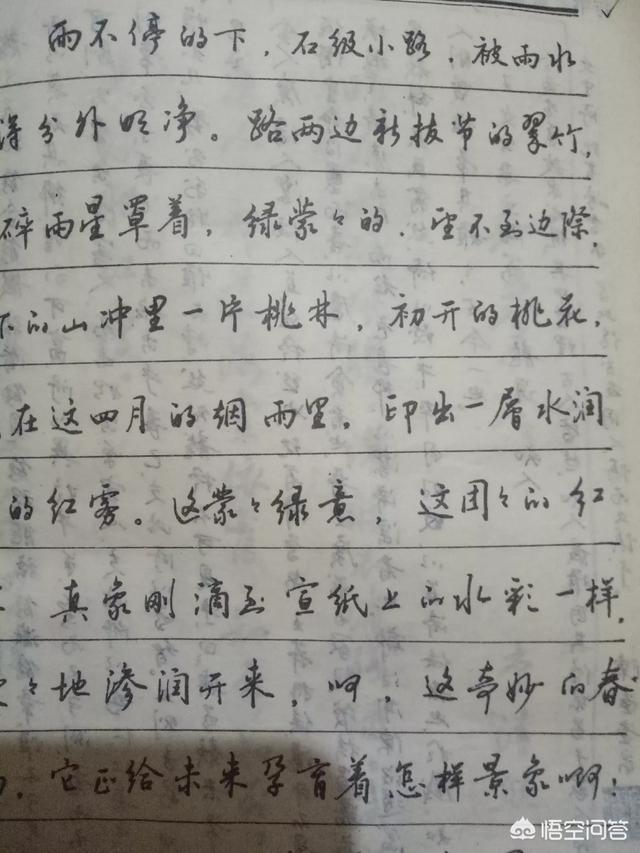 雨不停的下，石级小路，被雨水
得分外明净。路两边新拔节的翠竹，
碎雨星罩着，绿蒙々的，望不到边際，
下的山冲里一片桃林，初开的桃花，
在这四月的烟雨里。印出一層水润
的红雾。这蒙々绿意，这团々的红
真象刚滴到宣纸上的水彩一样，
々地渗润开来，啊，这奇妙的春
，它正给未来孕育着怎样景象啊！
悟空问答